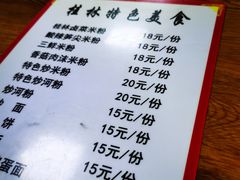 桂林特色美食
桂林卤菜米粉 18元/份
酸辣笋尖米粉 18元/份
三鲜米粉 18元/份
香菇肉沫米粉 18元/份
特色炒米粉 20元/份
特色炒河粉 20元/份
炒河粉 15元/份
面 15元/份
饼 15元/份
蛋面 15元/份